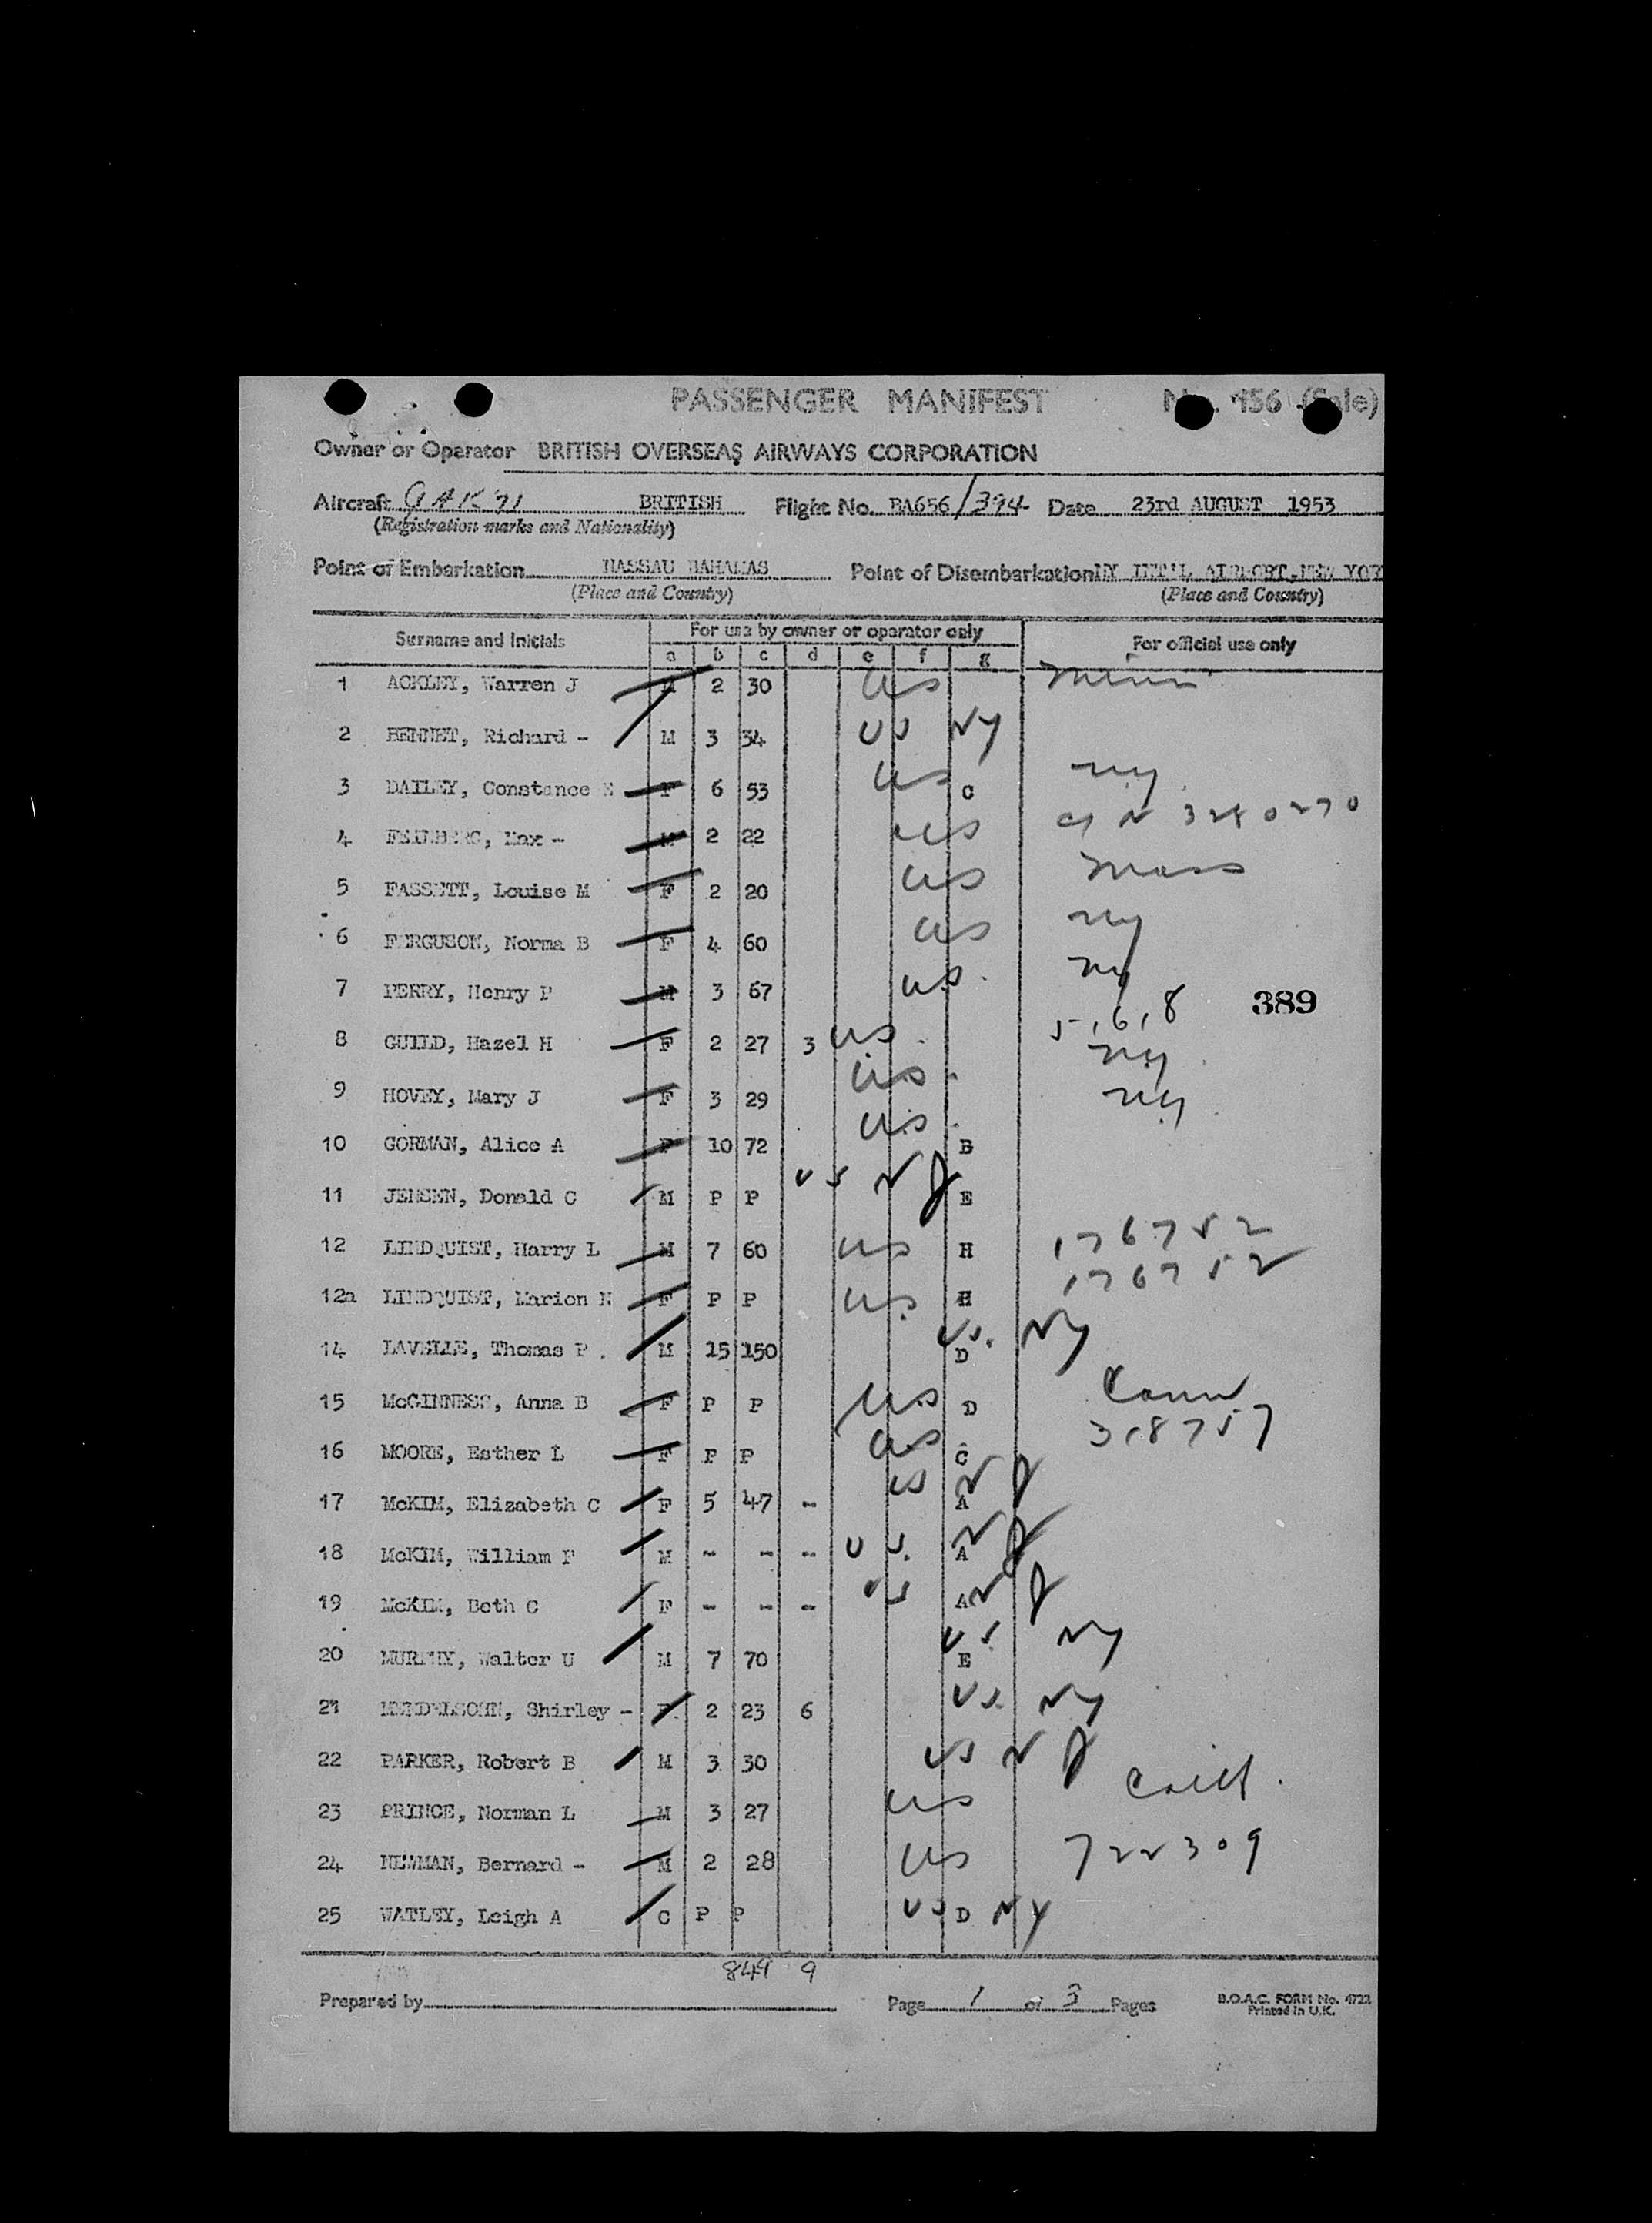 PASSENGER MANIFEST 156
Owner or Operator BRITISH OVERSEAS AIRWAYS CORPORATION
Aircraft BRITISH Flight No. BA656/394 Date 23rd AUGUST 1953
(Registration marks and Nationality)
Point of Embarkation NASSAU BAHAMAS Point of Disembarkation NY INT'L AIRPORT, NEW YOR
(Place and Country) (Place and Country)
Surname and Initials For use by owner or operator only For official use only
a b c d e f g
1 ACKLEY, Warren J M 2 30 US Minn
2 BENNET, Richard - M 3 34 US NY
3 DAILEY, Constance E F 6 53 US C NY
4 Max - M 2 22 US
5 FASSETT, Louise M F 2 20 US Mass
6 FERGUSON, Norma B F 4 60 US NY
7 PERRY, Henry P M 3 67 US NY
389
8 GUILD, Hazel H F 2 27 3 US NY
9 HOVEY, Mary J F 3 29 US NY
10 GORMAN, Alice A F 10 72 US B
11 JENSEN, Donald C M P P US NJ E
12 LINDQUIST, Harry L M 7 60 US H 176752
12a LINDQUIST, Marion N F P P US H 176752
14 LAVELLE, Thomas P. M 15 150 US D NY
15 McGINNESS, Anna B F P P US D Conn
16 MOORE, Esther L F P P US C 318757
17 McKIM, Elizabeth C F 5 47 - US A NJ
18 McKIM, William F M - - - US A NJ
19 McKIM, Beth C F - - - US A NJ
20 MURPHY, Walter U M 7 70 US E NY
21 MENDELSOHN, Shirley - F 2 23 6 US NY
22 PARKER, Robert B M 3 30 US NJ
23 PRINCE, Norman L M 3 27 US
24 NEWMAN, Bernard - M 2 28 US 722309
25 WATLEY, Leigh A C P P US D NY
9
Prepared by Page 1 of 3 Pages B.O.A.C. FORM No. 4722
Printed in U.K.